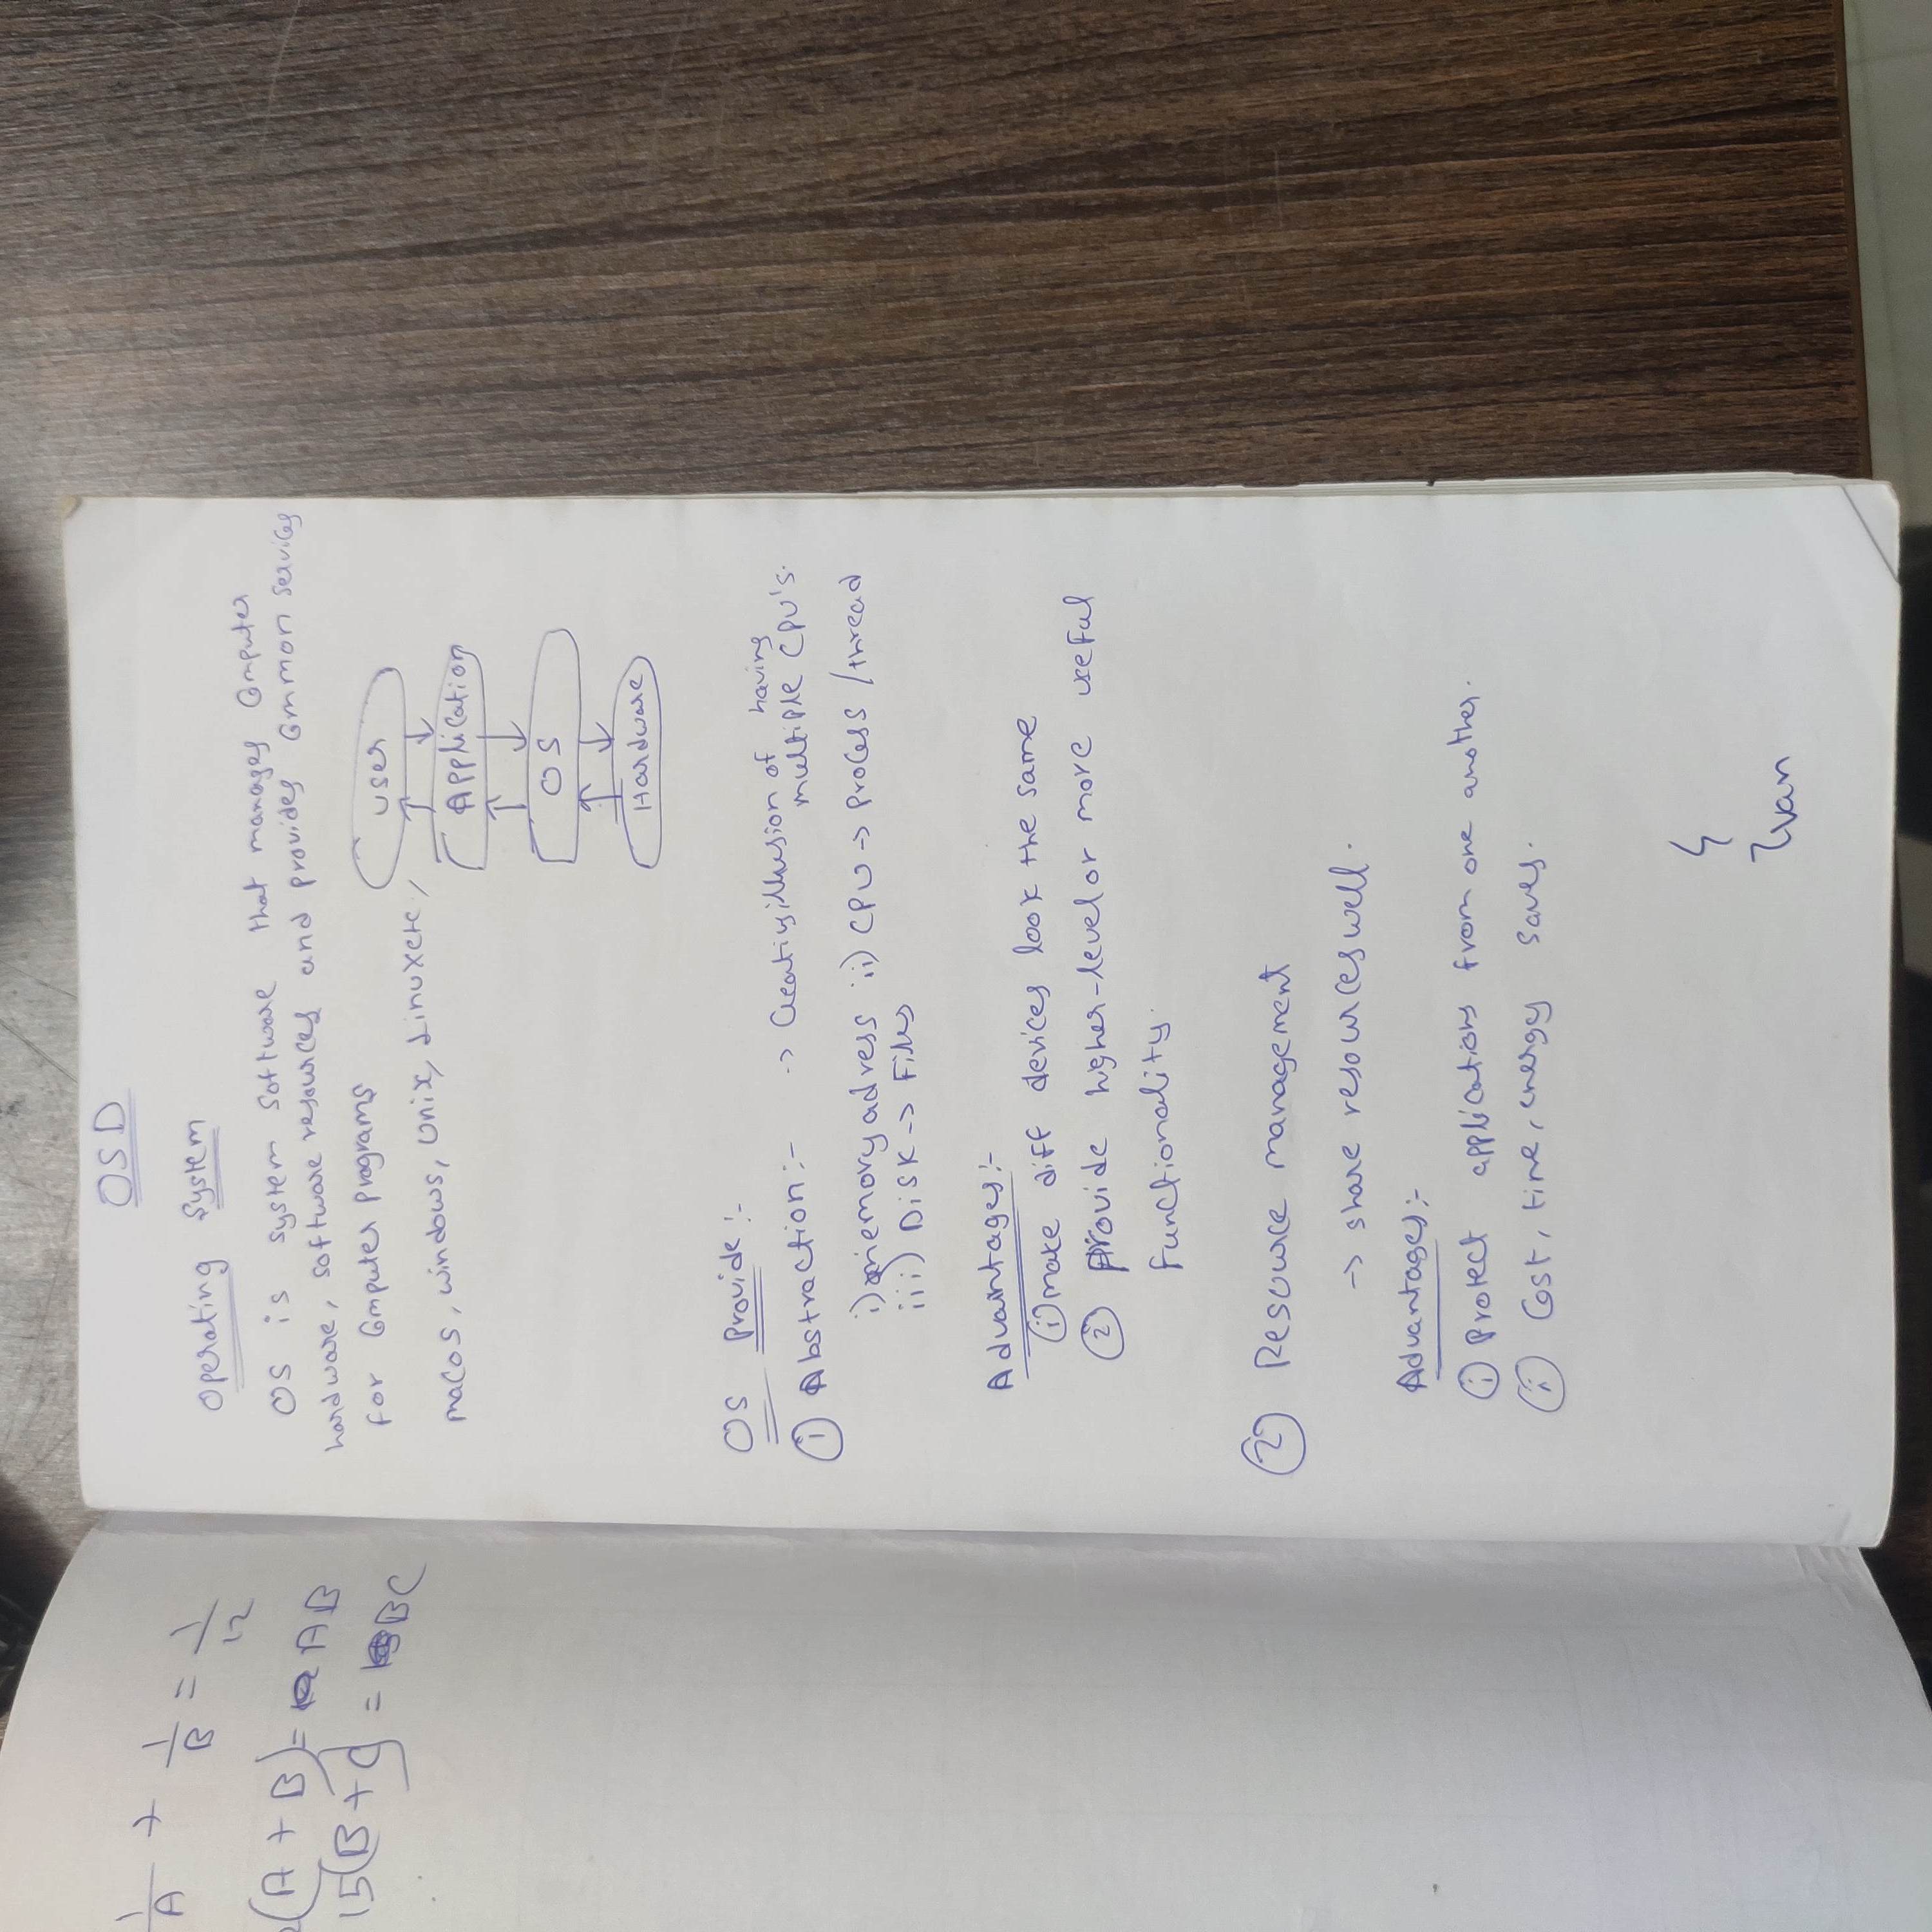 1/A + 1/B = 1/12
(A + B) = AB
15(B + C) = BC
OSD
Operating System
OS is system software that manages Computer
hardware, software resources and provides Common services
for Computer programs
macos, windows, Unix, Linux etc,
User
Application
OS
Hardware
OS Provide :-
① Abstraction :- -> Creating illusion of having
multiple CPU's.
i) memory adress ii) CPU -> Process / thread
iii) Disk -> Files
Advantages :-
① make diff devices look the same
② Provide higher-level or more useful
functionality.
② Resource management
-> share resources well.
Advantages :-
① Protect applications from one another.
② Cost, time, energy saves.